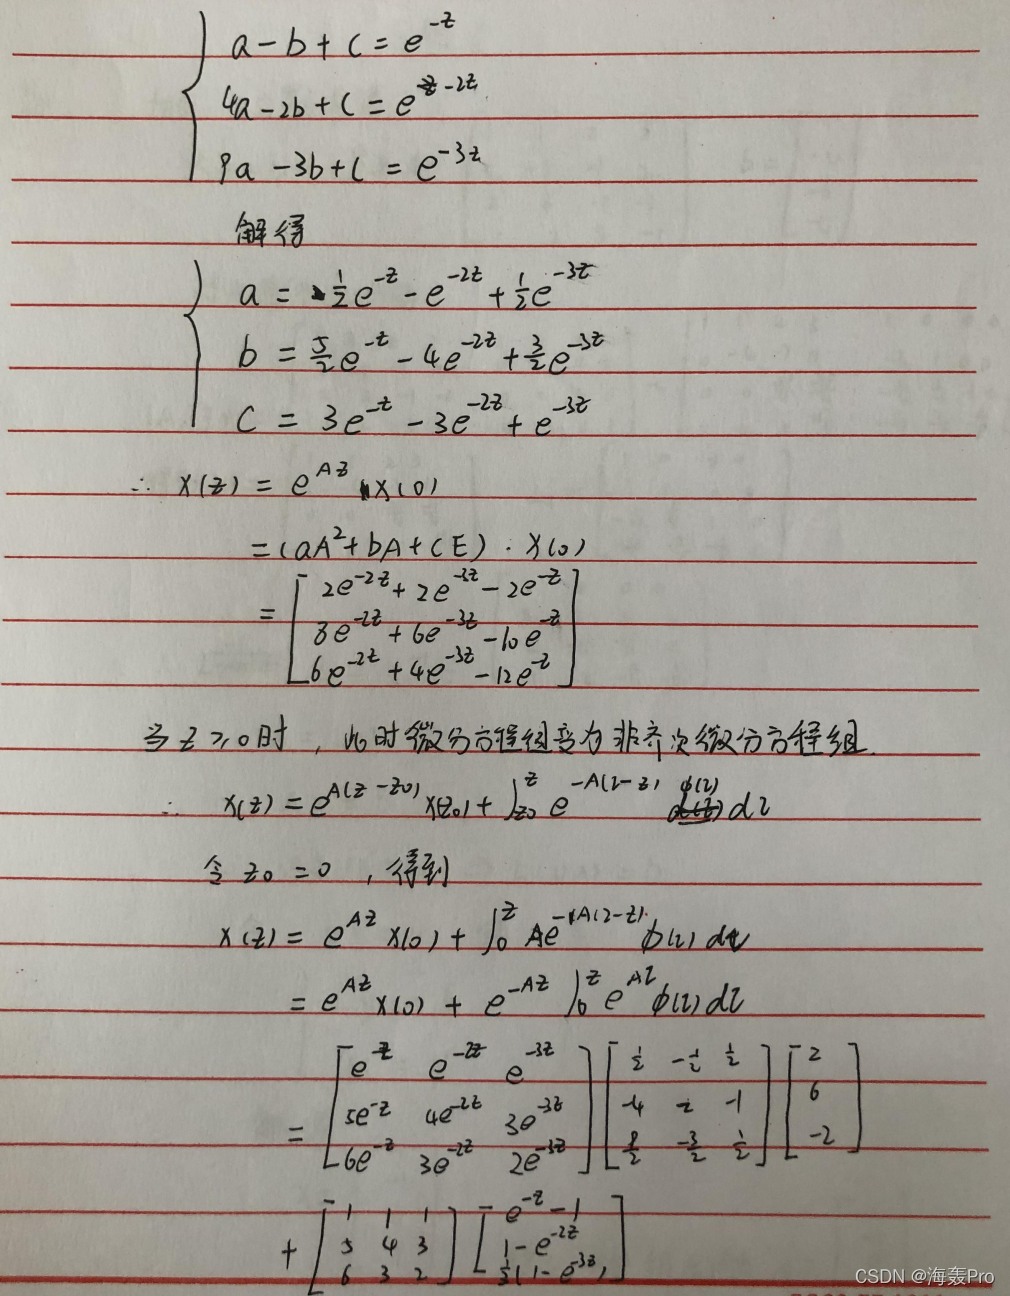 a - b + c = e^{-z}
4a - 2b + c = e^{-2z}
9a - 3b + c = e^{-3z}
解得
a = 1/2 e^{-z} - e^{-2z} + 1/2 e^{-3z}
b = 5/2 e^{-z} - 4e^{-2z} + 3/2 e^{-3z}
c = 3e^{-z} - 3e^{-2z} + e^{-3z}
∴ x(z) = e^{Az} x(0)
= (aA^2 + bA + cE) · x(0)
= [ 2e^{-2z} + 2e^{-3z} - 2e^{-z}
8e^{-2z} + 6e^{-3z} - 10e^{-z}
6e^{-2z} + 4e^{-3z} - 12e^{-z} ]
当 z ≥ 0 时, 此时微分方程组变为非齐次微分方程组.
∴ x(z) = e^{A(z-z0)} x(z0) + ∫_{z0}^{z} e^{-A(τ-z)} φ(τ) dτ
令 z0 = 0, 得到
x(z) = e^{Az} x(0) + ∫_0^z e^{-A(τ-z)} φ(τ) dτ
= e^{Az} x(0) + e^{-Az} ∫_0^z e^{Aτ} φ(τ) dτ
= [ e^{-z} e^{-2z} e^{-3z} ] [ 1/2 -1/2 1/2 ] [ 2 ]
[ 5e^{-z} 4e^{-2z} 3e^{-3z} ] [ -4 2 -1 ] [ 6 ]
[ 6e^{-z} 3e^{-2z} 2e^{-3z} ] [ 9/2 -3/2 1/2 ] [ -2 ]
+ [ 1 1 1 ] [ e^{-z} - 1 ]
[ 5 4 3 ] [ 1 - e^{-2z} ]
[ 6 3 2 ] [ 1/3 (1 - e^{-3z}) ]
CSDN @海轰Pro